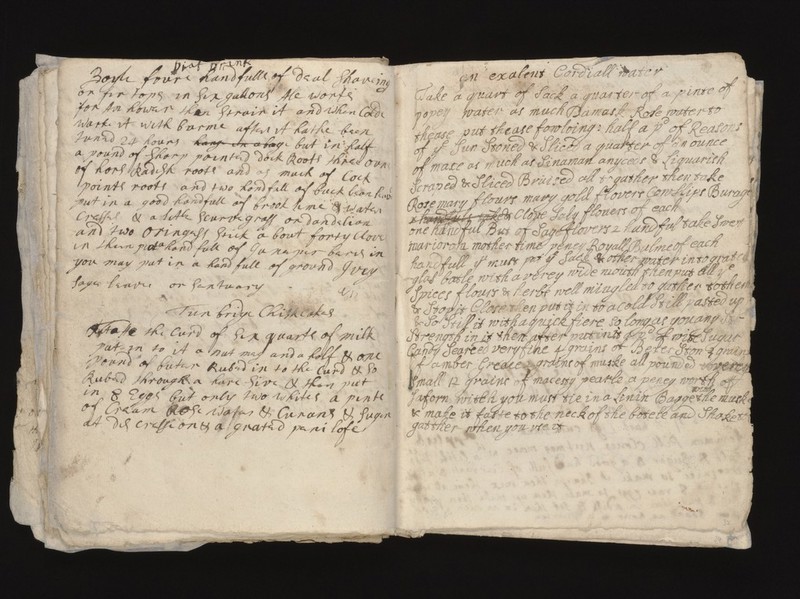 Boyle foure handfulls of deal Shaveing
or fir tops in six gallons Ale worte
for An hower then Strain it and when Colde
work it with barme after it hathe been
tuned 24 hours hang in a bag but in half
a pound of Sharp pointed dock Roots three oun
of hors Radish roots and as much of Cock
points roots and two handfull of buck bean
put in a good handfull of brook lime & water
Cresses & a litle Scurvegrass or dandelion
and two oringess Stick a bout forty Clove
in them put a hand full of Junnaper baris in
you may put in a hand full of ground Ivey
Sage leaves or Santuary
Tunbridg Chisecakes
Take the Curd of Six quarts of milk
put in to it a nutmeg and a half & one
pound of buter Rubed in to the Curd & so
Rubed through a hare Sive & than put
in 8 Eggs but only two whites a pinte
of Cream Rose Water & Curans & Suger
at discression & a grated peni lofe
An exalent Cordiall water
Take a quart of Sack a quarter of a pinte of
popey water as much Damask Rose water to
thease put thease fowloing: half a pd of Reasons
of ye Sun Stoned & Sliced a quarter of an ounce
of mace as much as Sinaman anyceds & Liquarish
Scraped & Sliced Brused all together then take
Rosemary flours mary gold flovers Conslips Burage
& Clove Joly flowers of each
one handful But of Sage flovers 2 handful take Sweet
marioram mother time peney Royall Balme of each
handfull ys must put ys Sack & other water into a great
glas botle with a verey wide mouth then put all ye
Spices flours & herbs well mingled to gather to them
& Stop it Close then put it in to a Cold Still pasted up
So Still it with a quick fiere so long as you any
Strength in it then after put into of wite Suger
Candy Seareed very fine 4 grains of
of amber Greace grains of muske all pounded verey
small 12 grains of peatle a peney worth of
Saforn wich you must tie in a Linin Bagge the muske
& make it faste to the neck of the botele and Shake it
gatther when you use it